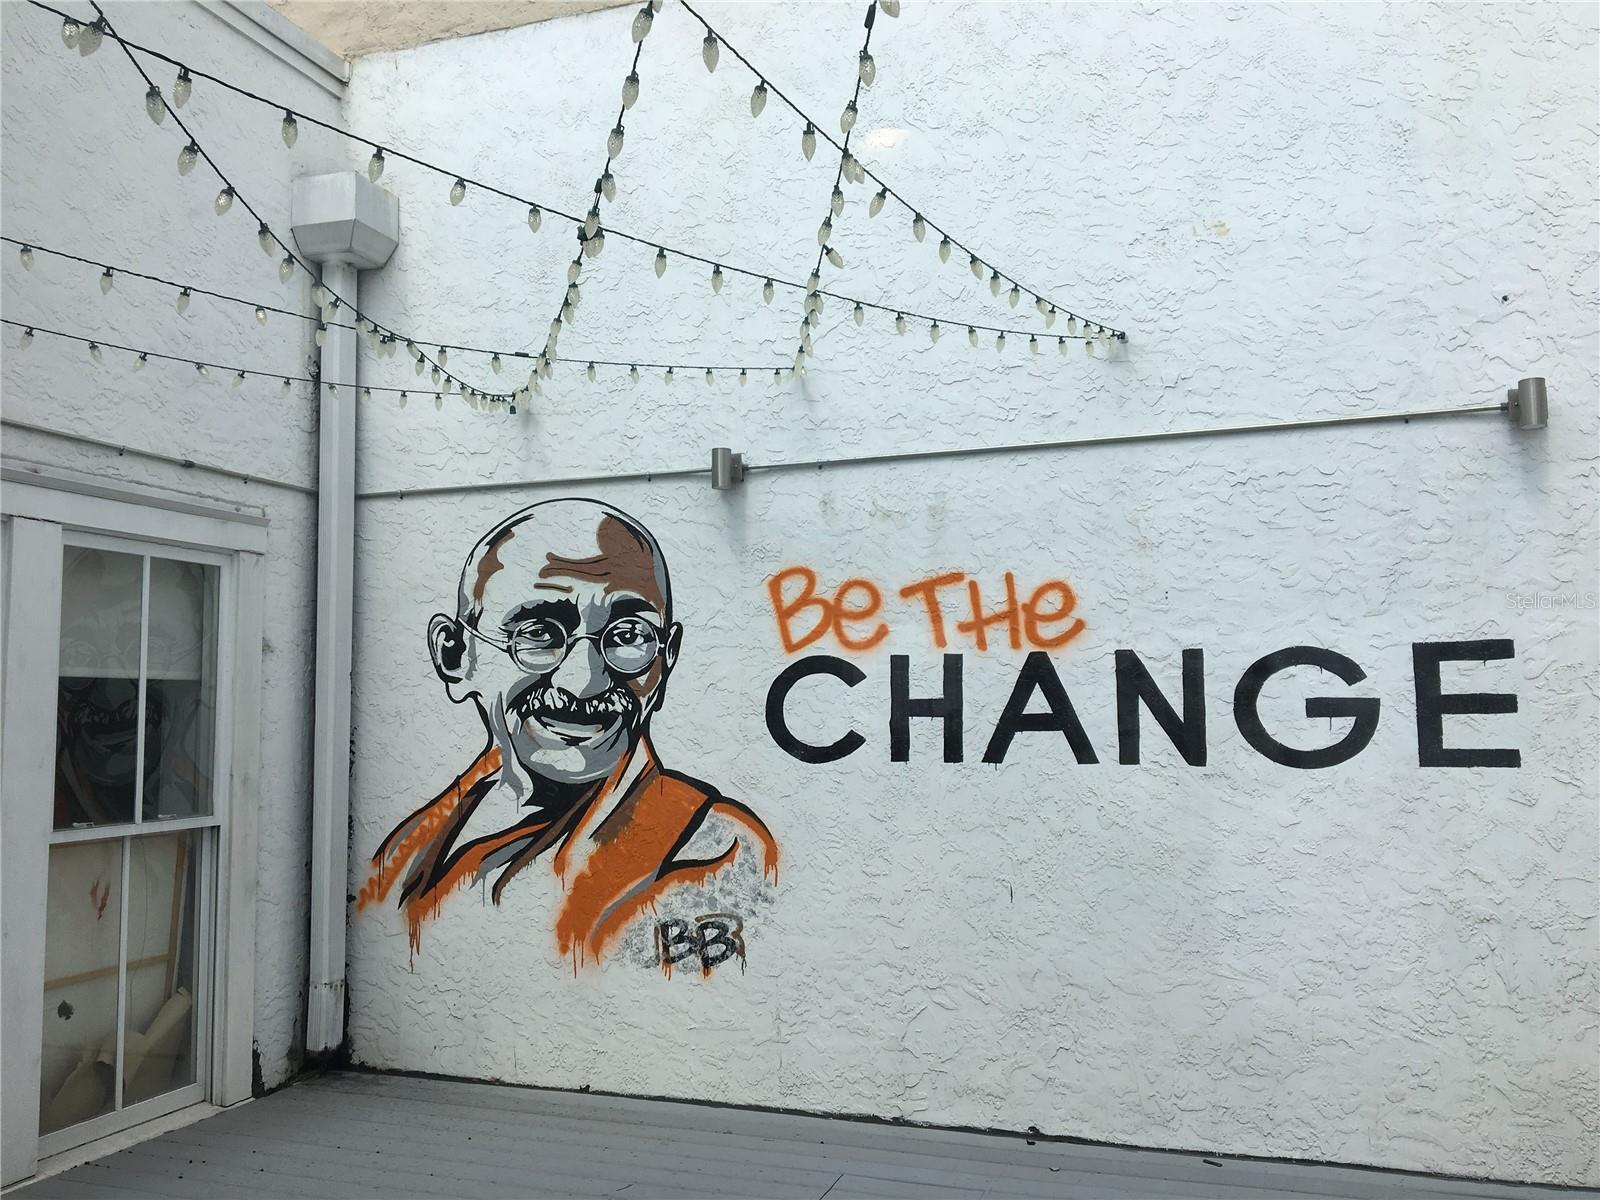 Be THe
CHANGE
BB
Stellar MLS